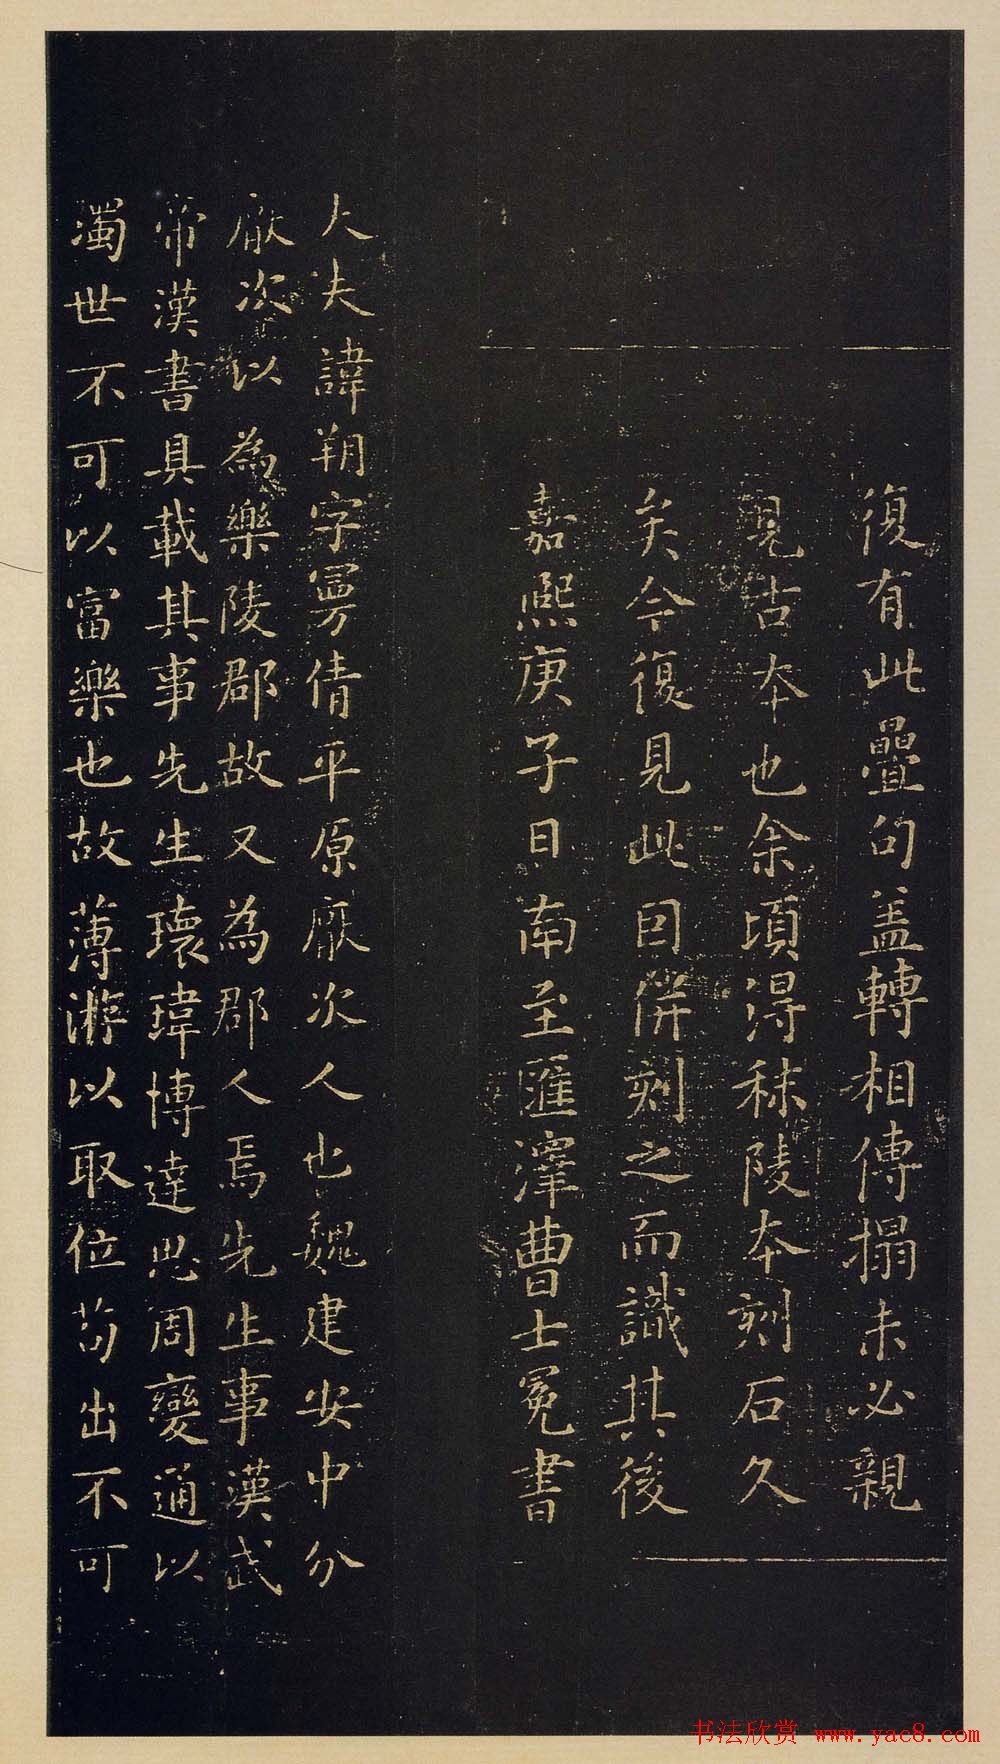 復有此疊句盖轉相傳搨未必親
見古本也余頃得秣陵本刻石久
矣今復見此因併刻之而識其後
嘉熙庚子日南至匯澤曹士冕書
大夫諱朔字曼倩平原厭次人也魏建安中分
厭次以為樂陵郡故又為郡人焉先生事漢武
帝漢書具載其事先生瓌瑋博達思周變通以
濁世不可以富樂也故薄游以取位苟出不可
书法欣赏 www.yac8.com